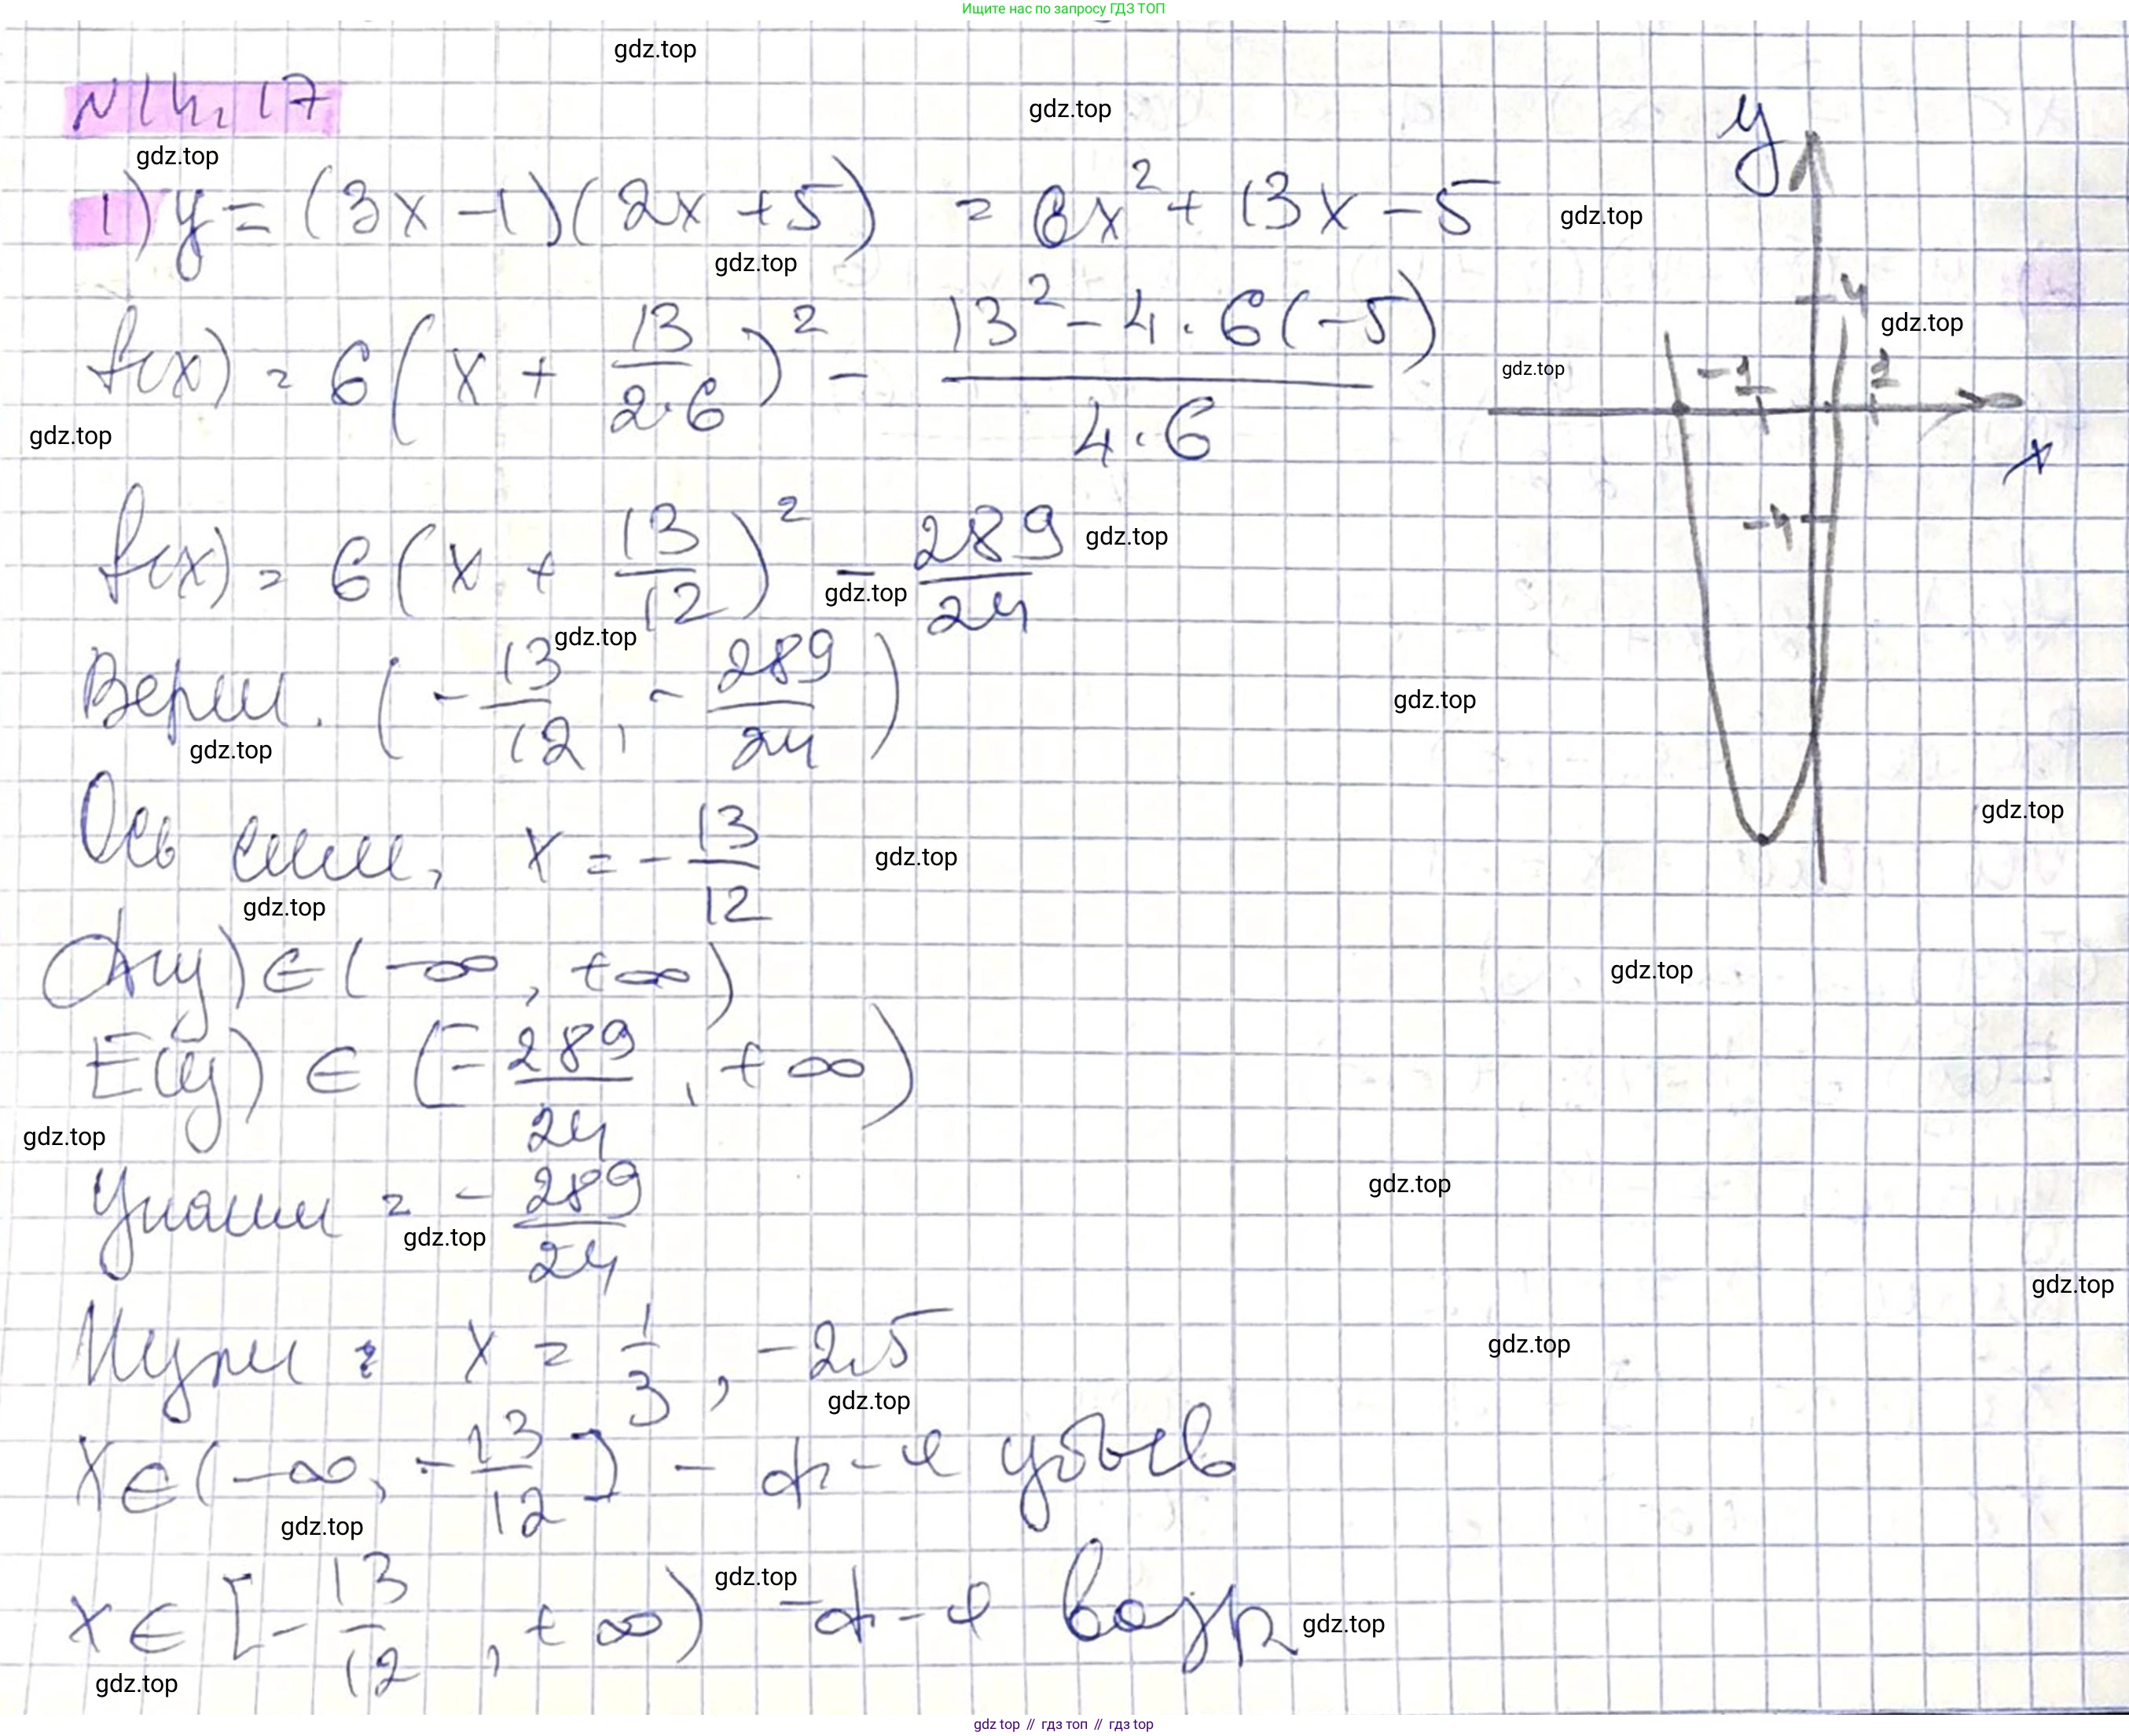 Ищите нас по запросу ГДЗ ТОП
gdz.top
N14.17
gdz.top
gdz.top
1) y = (3x - 1)(2x + 5) = 6x² + 13x - 5
gdz.top
gdz.top
y
f(x) = 6(x + 13/(2·6))² - (13² - 4·6(-5))/(4·6)
gdz.top
gdz.top
gdz.top
4
-1
1
x
-4
f(x) = 6(x + 13/12)² - 289/24
gdz.top
gdz.top
gdz.top
Верш. (-13/12, -289/24)
gdz.top
gdz.top
Ось сим, x = -13/12
gdz.top
gdz.top
gdz.top
D(y) ∈ (-∞, +∞)
gdz.top
E(y) ∈ [-289/24, +∞)
gdz.top
gdz.top
yнаим = -289/24
gdz.top
gdz.top
Нули: x = 1/3, -2,5
gdz.top
gdz.top
x ∈ (-∞, -13/12] - ф-я убыв
gdz.top
gdz.top
x ∈ [-13/12, +∞) - ф-я возр
gdz.top
gdz.top
gdz top // гдз топ // gdz top